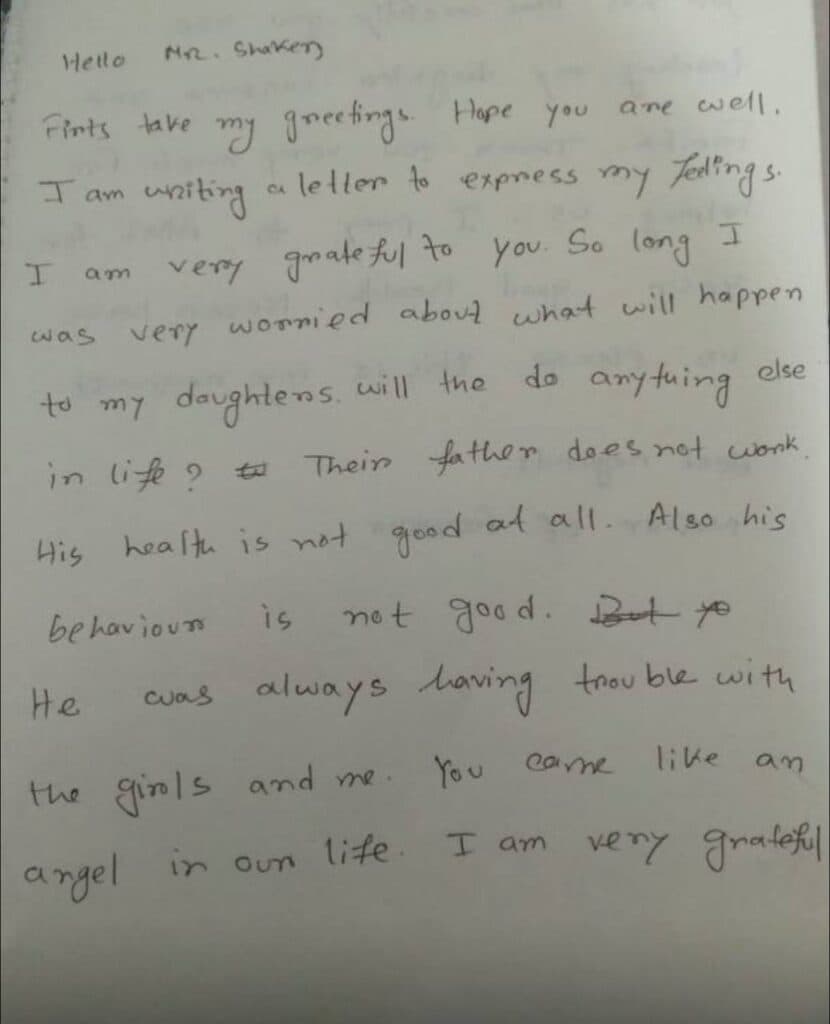 Hello Mr. Shaker,
Firts take my greetings. Hope you are well.
I am writing a letter to express my feelings.
I am very grateful to you. So long I
was very worried about what will happen
to my daughters. will the do anything else
in life? Their father does not work.
His health is not good at all. Also his
behaviour is not good. But yo
He was always having trouble with
the girls and me. You came like an
angel in our life. I am very grateful